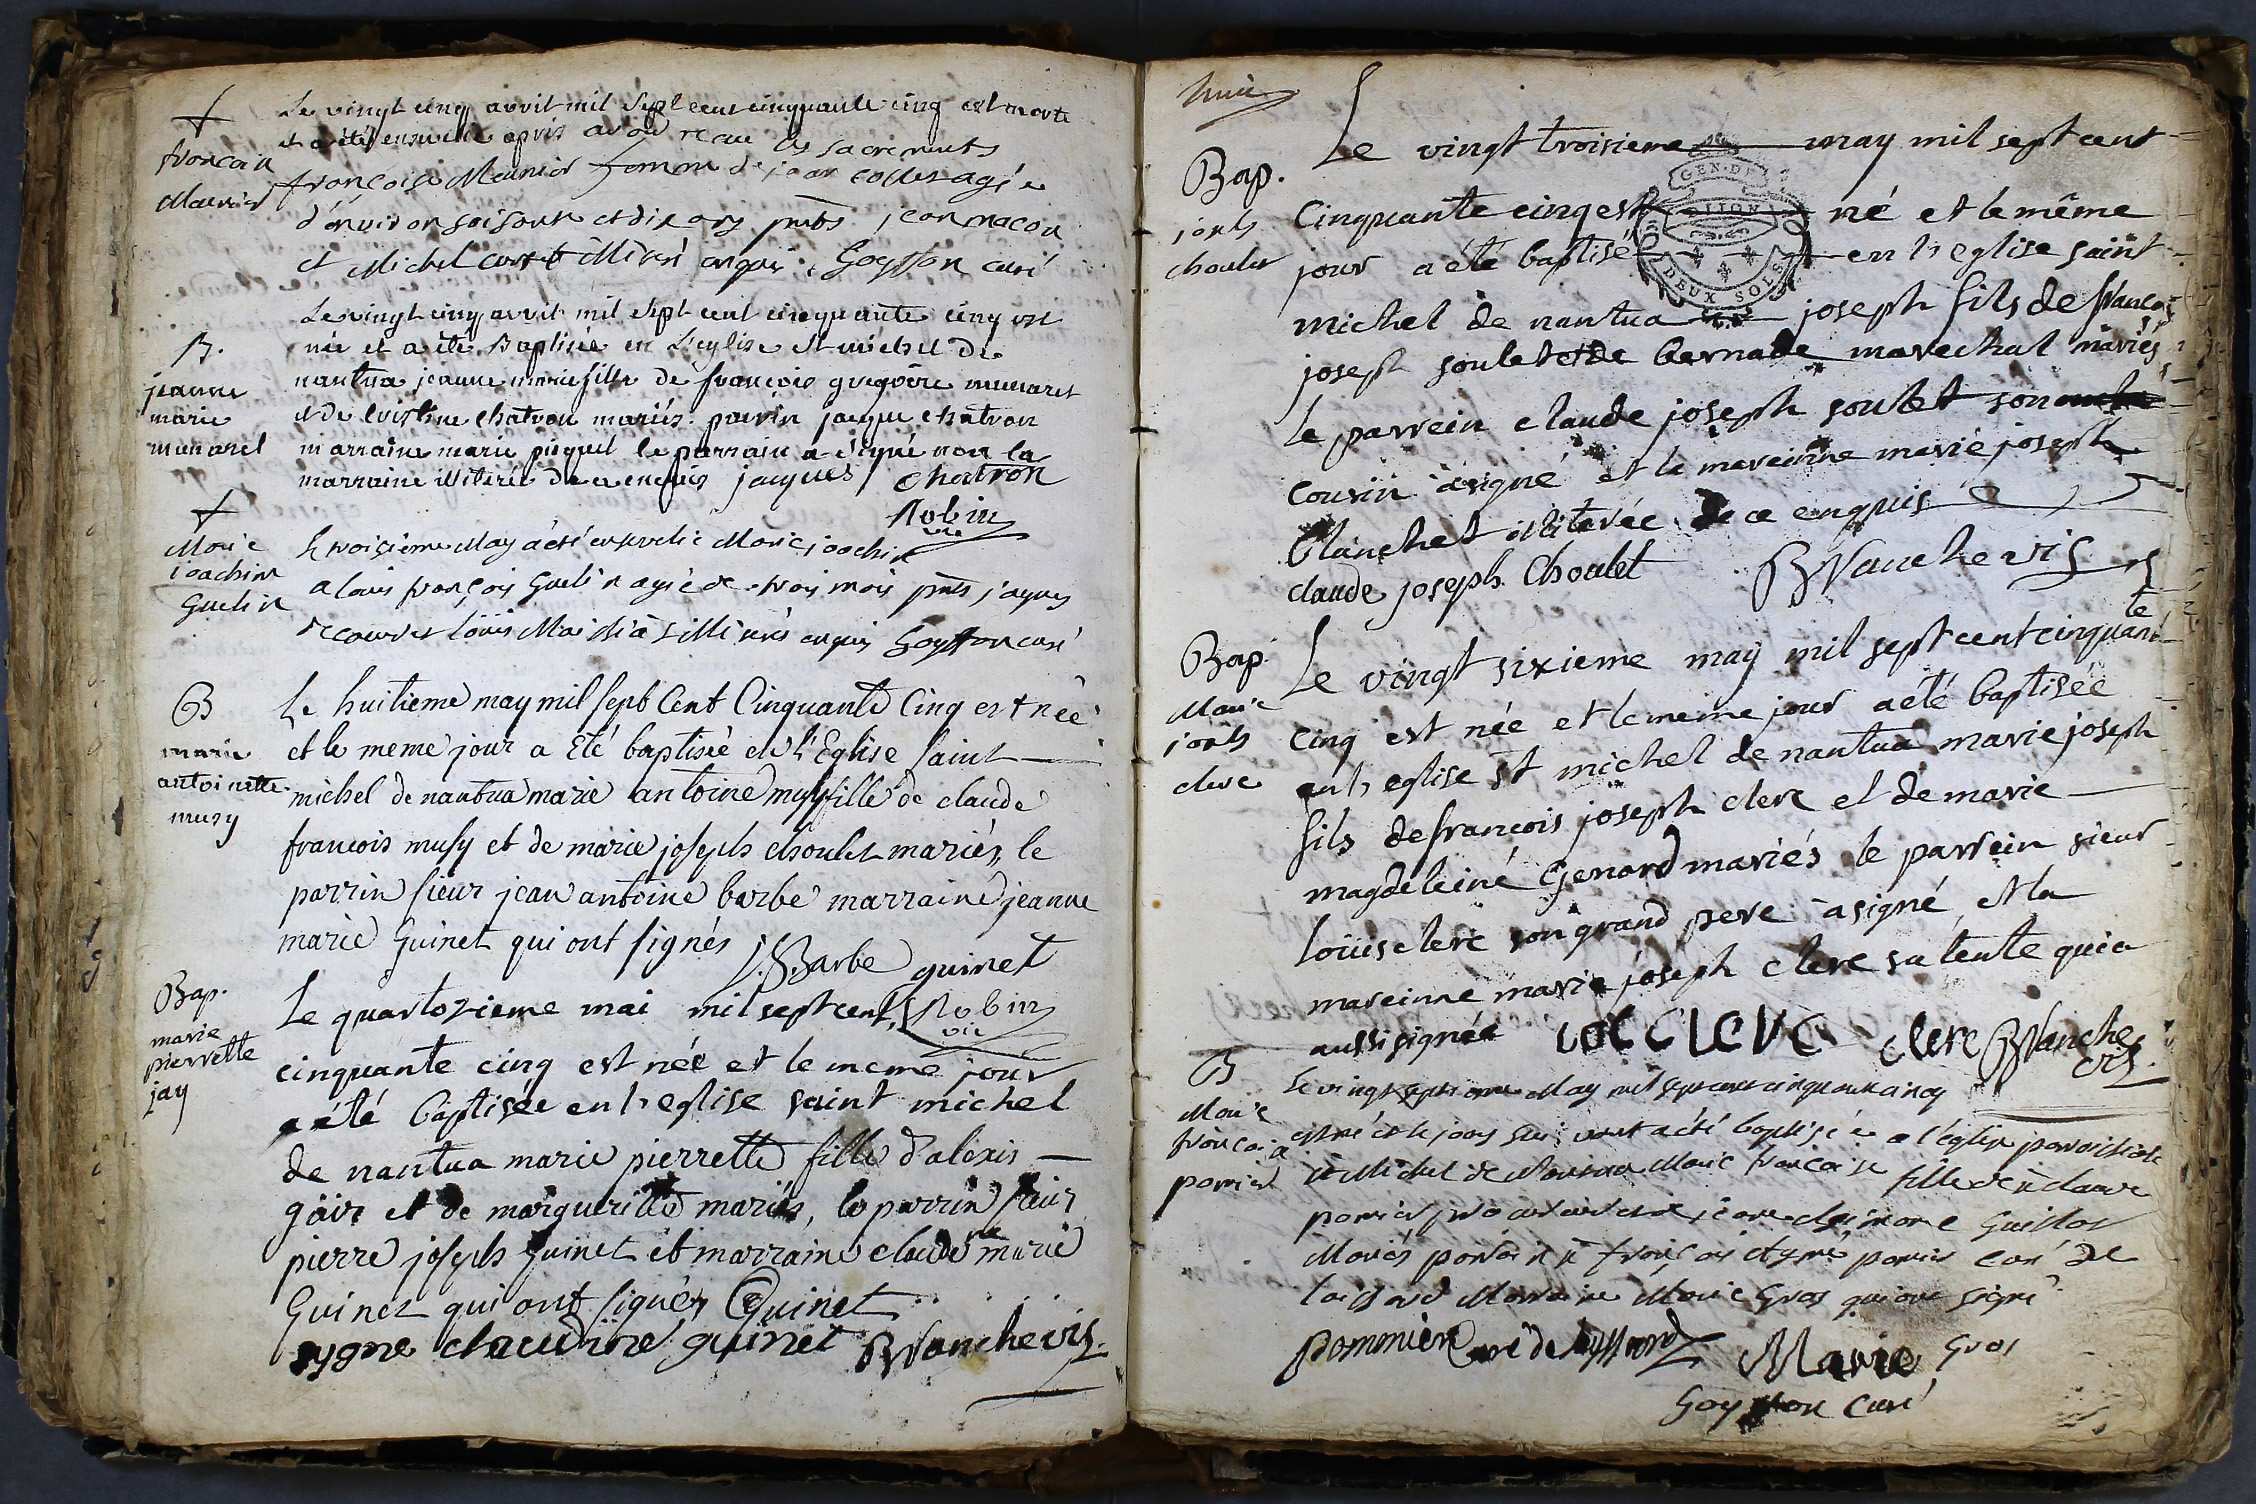 †
françoise
Meunier
Le vingt cinq avril mil Sept cent cinquante cinq est morte
et a été ensevelie après avoir reçu les sacrements
françoise Meunier femme de jean collet agée
d'environ soisante et dix ans pnts jean macon
et Michel curt illiterés enquis. Goyffon curé
B.
jeanne
marie
munaret
Le vingt cinq avril mil Sept cent cinquante cinq est
née et a été Baptisée en L'eglise St michel de
nantua jeanne marie fille de françois gregoire munaret
et de cristine chatron mariés. parrin jacque chatron
marraine marie piquet le parrain a signé non la
marraine illiterée de ce enquis jacques chatron
Robin
vic
†
Marie
joachim
Guelin
le troisieme May a été ensevelie Marie joachim
a louis françois Guelin agée de trois mois pnts jaques
louis illiterés enquis Goyffon curé
B
marie
antoinette
musy
Le huitieme may mil sept Cent Cinquante Cinq est née
et le meme jour a Eté baptisée en l'Eglise saint
michel de nantua marie antoine musy fille de claude
francois musy et de marie joseph choulet mariés, le
parrin sieur jean antoine barbe marraine jeanne
marie Guinet qui ont signés J. Barbe guinet
Robin
vic
Bap.
marie
pierrette
jay
Le quartozieme mai mil sept cent
cinquante cinq est née et le meme jour
a été baptisée en l'eglise saint michel
de nantua marie pierrette fille d'alexis
jaÿ et de margueritte mariés, le parrin sieur
pierre joseph guinet et marraine claudine marie
Guinet qui ont signés Guinet
sygne claudine guinet BVanchevic
huit
Bap.
joseph
choulet
Le vingt troisieme may mil sept cent
Cinquante cinq est né et le même
jour a été baptisé en l'eglise saint
michel de nantua joseph fils de francois
joseph soulet et de bernade marechal mariés
le parrein claude joseph soulet son
cousin a signé et la mareinne marie joseph
blanchet illiterée de ce enquis
claude joseph Choulet BVanchevic
GEN. DE
DIJON
DEUX SOLS
Bap.
Marie
joseph
clerc
Le vingt sixieme may mil sept cent cinquante
cinq est née et le meme jour a été baptisée
en l'eglise St michel de nantua marie joseph
fils de françois joseph clerc et de marie
magdeleine Genard mariés le parrein sieur
loüis clerc son grand pere a signé et la
mareinne marie joseph clerc sa tente qui a
aussi signée CLERC clerc BVanche
vic
B
Marie
françoise
pomier
Le vingt septieme May mil sept cent cinquante cinq
est née et le jour suivant a été baptisée a l'église paroissiale
St Michel de Nantua Marie françoise fille de claude
pomier et de jeanne Guillot
Mariés parrain françois pomier curé de
laissard Marraine Marie Gros qui ont signé
pommier curé de leyssard Marie Gros
Goyffon curé